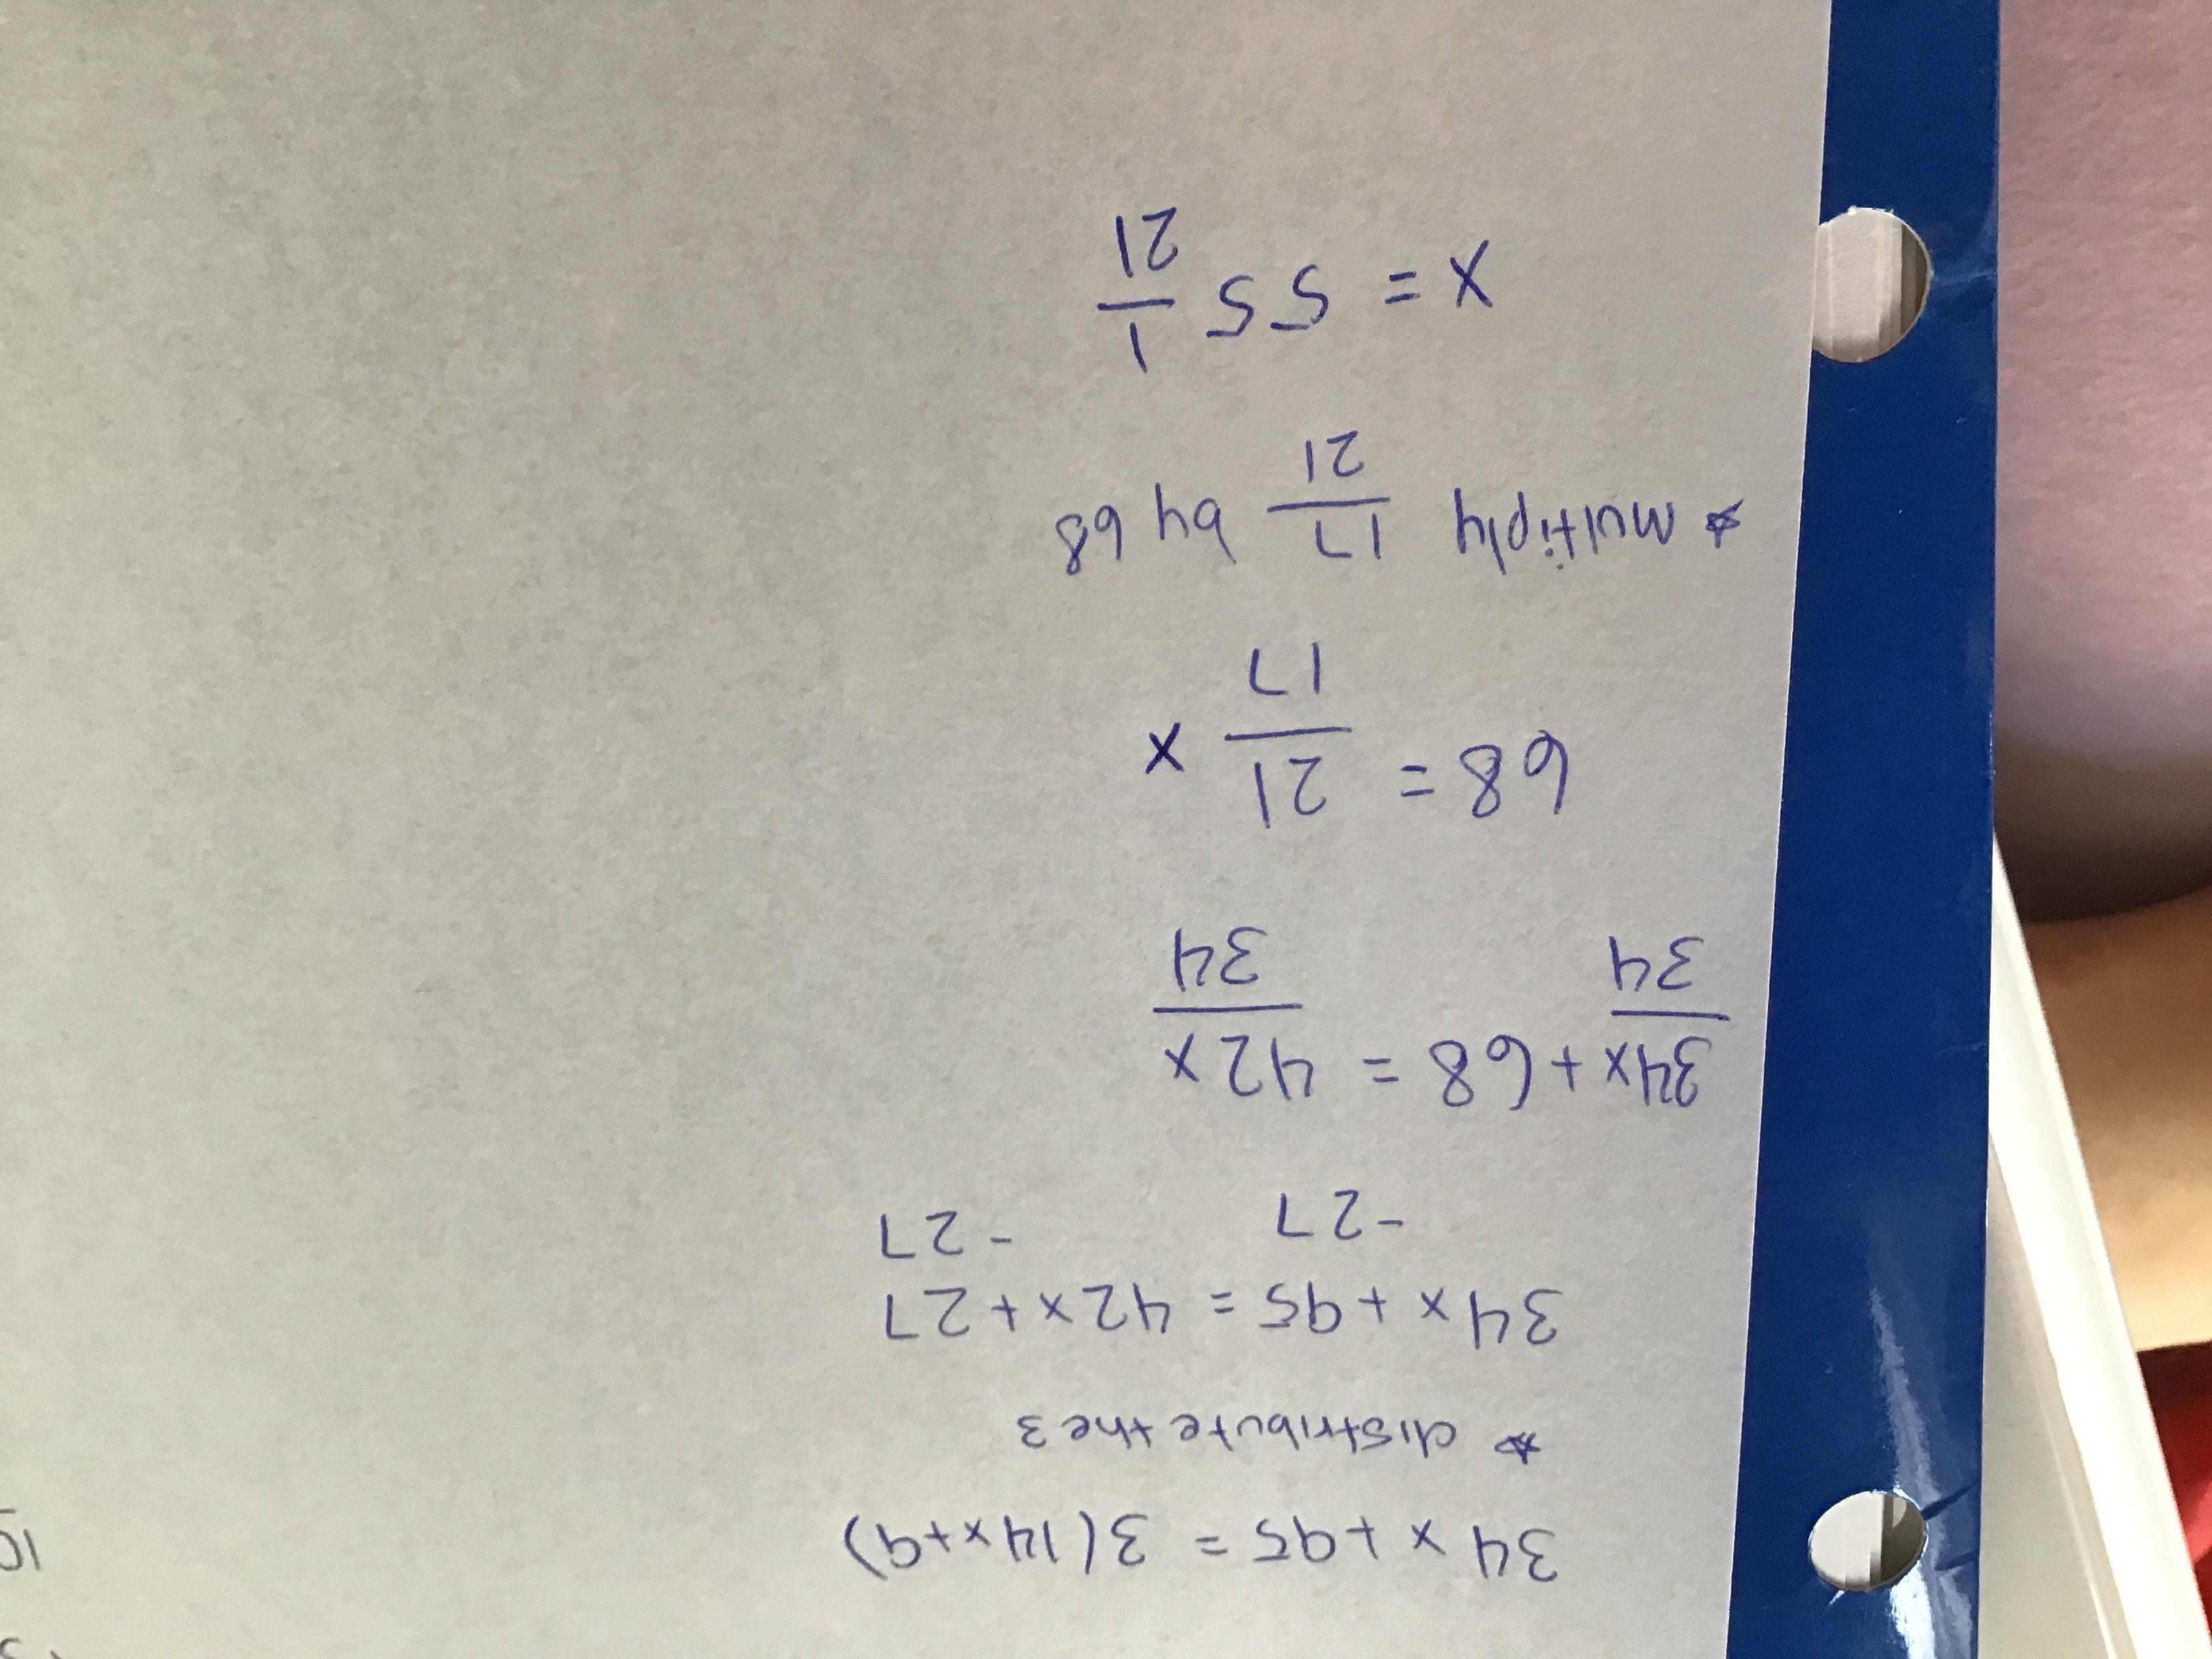 34x+95 = 3(14x+9)
☆ distribute the 3
34x+95 = 42x+27
-27 -27
34x+68 = 42x
34 34
68 = 21/17 x
☆ multiply 17/21 by 68
x = 55 1/21
10